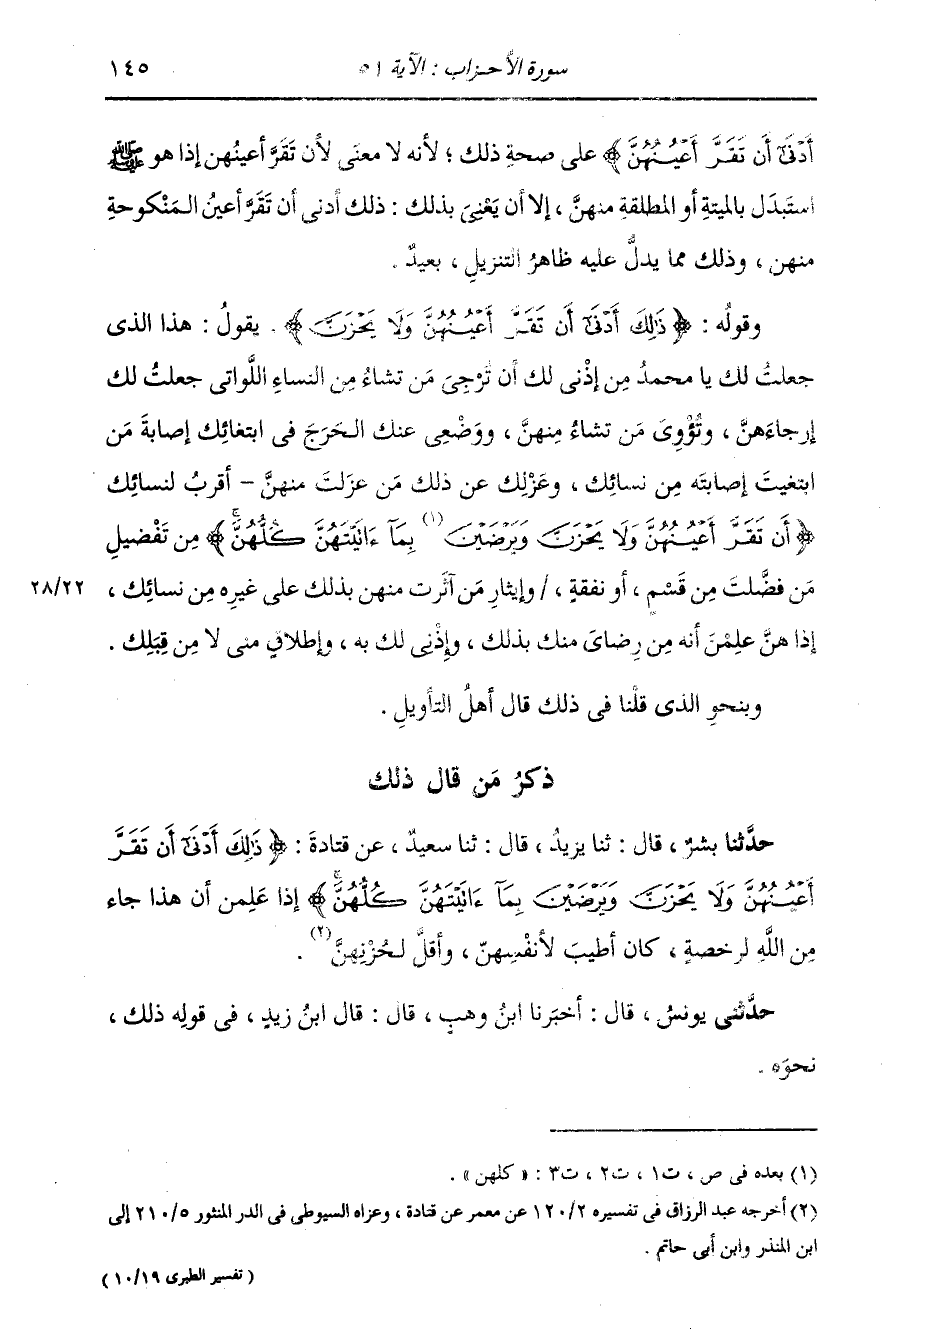 سورة الأحزاب : الآية ٥١ ١٤٥
أَدْنَىٰٓ أَن تَقَرَّ أَعْيُنُهُنَّ ﴾ على صحةِ ذلك ؛ لأنه لا معنَى لأن تَقَرَّ أعينُهن إذا هو ﷺ
استَبدَل بالميتةِ أو المطلقةِ منهنَّ ، إلا أن يَعْنِىَ بذلك : ذلك أدنى أن تَقَرَّ أعينُ المَنْكوحةِ
منهن ، وذلك مما يدلُّ عليه ظاهرُ التنزيلِ ، بعيدٌ .
وقولُه : ﴿ ذَٰلِكَ أَدْنَىٰٓ أَن تَقَرَّ أَعْيُنُهُنَّ وَلَا يَحْزَنَّ ﴾ . يقولُ : هذا الذى
جعلتُ لك يا محمدُ مِن إذْنى لك أن تُرْجِىَ مَن تشاءُ مِن النساءِ اللَّواتى جعلتُ لك
إرجاءَهنَّ ، وتُؤْوِىَ مَن تشاءُ مِنهنَّ ، ووَضْعِى عنك الحَرَجَ فى ابتغائِك إصابةَ مَن
ابتغيتَ إصابتَه مِن نسائِك ، وعَزْلِك عن ذلك مَن عزَلتَ منهنَّ - أقربُ لنسائِك
﴿ أَن تَقَرَّ أَعْيُنُهُنَّ وَلَا يَحْزَنَّ وَيَرْضَيْنَ (١) بِمَآ ءَاتَيْتَهُنَّ كُلُّهُنَّ ﴾ مِن تَفْضيلِ
مَن فضَّلتَ مِن قَسْمٍ ، أو نفقةٍ ، / وإيثارِ مَن آثَرت منهن بذلك على غيرِه مِن نسائِك ، ٢٨/٢٢
إذا هنَّ علِمْنَ أنه مِن رِضاىَ منك بذلك ، وإِذْنِى لك به ، وإطلاقٍ منى لا مِن قِبَلِك .
وبنحوِ الذى قلْنا فى ذلك قال أهلُ التأويلِ .
ذكرُ مَن قال ذلك
حدَّثنا بشرٌ ، قال : ثنا يزيدُ ، قال : ثنا سعيدٌ ، عن قتادةَ : ﴿ ذَٰلِكَ أَدْنَىٰٓ أَن تَقَرَّ
أَعْيُنُهُنَّ وَلَا يَحْزَنَّ وَيَرْضَيْنَ بِمَآ ءَاتَيْتَهُنَّ كُلُّهُنَّ ﴾ إذا عَلِمن أن هذا جاء
مِن اللَّهِ لرخصةٍ ، كان أطيبَ لأنفْسِهنّ ، وأقلَّ لحُزْنِهنَّ (٢) .
حدَّثنى يونسُ ، قال : أخبَرنا ابنُ وهبٍ ، قال : قال ابنُ زيدٍ ، فى قولِه ذلك ،
نحوَه .
(١) بعده فى ص ، ت١ ، ت٢ ، ت٣ : « كلهن » .
(٢) أخرجه عبد الرزاق فى تفسيره ١٢٠/٢ عن معمر عن قتادة ، وعزاه السيوطى فى الدر المنثور ٢١٠/٥ إلى
ابن المنذر وابن أبى حاتم .
( تفسير الطبرى ١٠/١٩ )